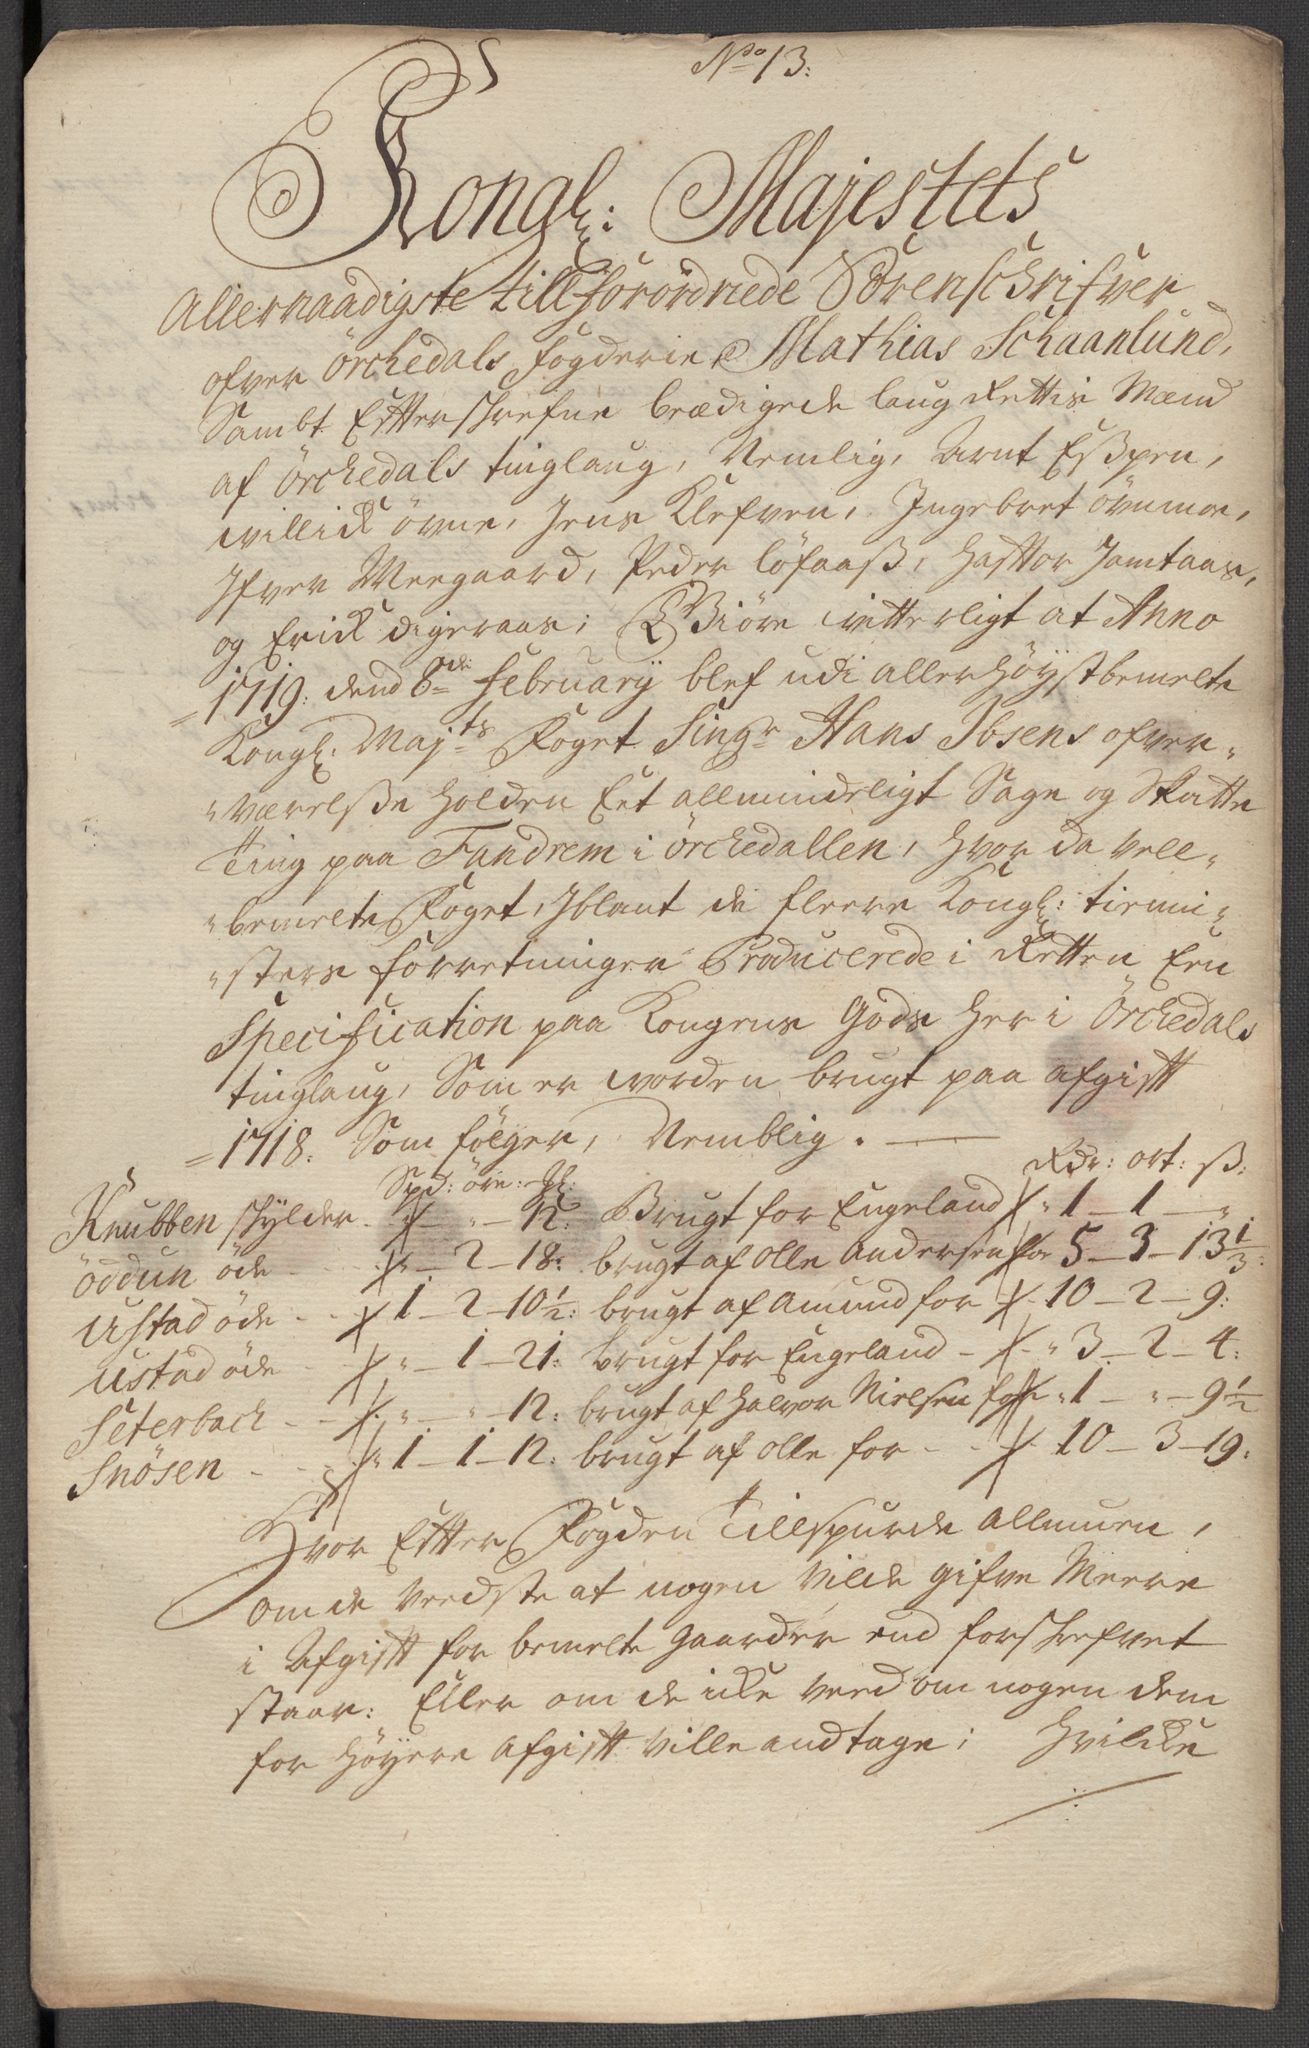 No 13:
Kongl: Majestets
Allernaadigste tillforordnede Sorenschrifver
ofver Örckedals fogderie, Mathias Schaanlund,
Sambt Effterschrefne beædigede laug Rettis Mænd
af Örckedals tinglaug, Nemlig, Arnt Esspen,
willick övne, Jens Klefven, Ingebret övnmoe,
Ifver Weegaard, Peder löfaass, Hafftor Jamtaas,
og Erick digeraas; Giöre witterligt at Anno
=1719: dend 8de February blef udi allerhöystbemelte
Kongl: Majts Foget Singr Hans Ibsens ofver-
-værelsse holden Eet allmindeligt Sage og Skatte
Ting paa Fandrem i Örckedallen, hvor da vell-
-bemelte Foget, Iblant de fleere Kongl: tienni-
-sters forretninger Producerede i Retten Een
Specification paa Kongens Gods her i Örckedals
tinglaug, Som er worden brugt paa afgifft
=1718. Som fölger, Nemblig.
Spd: öre: Rdr: ort: ß:
Knubben schylder - " - 12: Brugt for Engeland " 1 - 1 - "
Öddun öde " - 2 - 18: brugt af olle andersen for 5 - 3 - 13 1/3:
Ustad öde - 1 - 2 - 10½: brugt af Amund for 10 - 2 - 9:
Ustad öde " - 1 - 21: brugt for Engeland - " 3 - 2 - 4:
Seterbach - " - " - 12: brugt af Halvor Nielsen for " 1 - " - 9½
Snösen - 1 - 1 - 12: brugt af olle for - 10 - 3 - 19:
Hvor Effter Fogden Tillspurde allmuen,
om de veedste at nogen vilde gifve Meere
i Afgifft for bemelte gaarder end forschrefvet
staar: Eller om de icke veed om nogen dem
for höyere afgifft ville andtage; Hvilcke